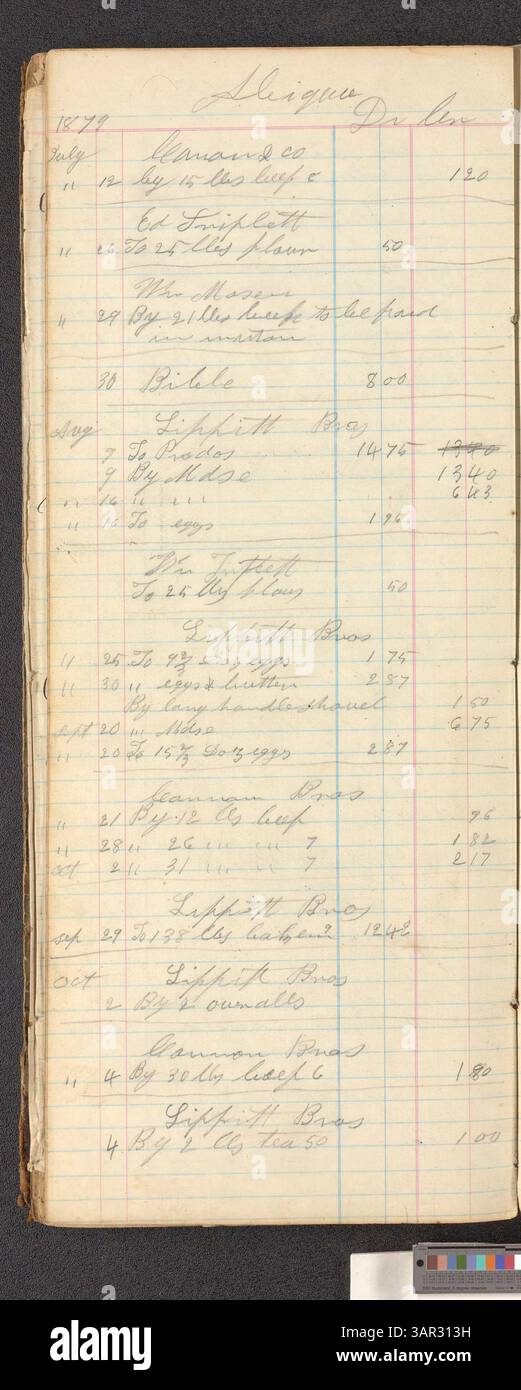 1879
Dr Cr
July Cannon & Co
" 12 by 15 lbs beef 8 1 20
Ed Triplett
" 26 To 25 lbs flour 50
Wm Moser
" 29 By 21 lbs beef to be paid
in
30 Bible 8 00
Aug Lippitt Bros
9 To Prodos 14 75 13 40
9 By Mdse 13 40
" 16 " " 6 43
" 16 To eggs 1 96
Wm Triplett
To 25 lbs flour 50
Lippitt Bros
" 25 To 9 2/3 Doz eggs 1 75
" 30 " eggs & butter 2 87
By long handle shovel 1 50
Sept 20 " Mdse 6 75
" 20 To 15 2/3 Doz eggs 2 87
Cannon Bros
" 21 By 12 lbs beef 96
" 28 " 26 " " 7 1 82
Oct 2 " 31 " " 7 2 17
Lippitt Bros
Sep 29 To 138 lbs 9 12 42
Oct Lippitt Bros
2 By 2 overalls
Cannon Bros
" 4 By 30 lbs beef 6 1 80
Lippitt Bros
4 By 2 lbs tea 50 1 00
alamy
alamy
Image ID: 3AR313H
www.alamy.com